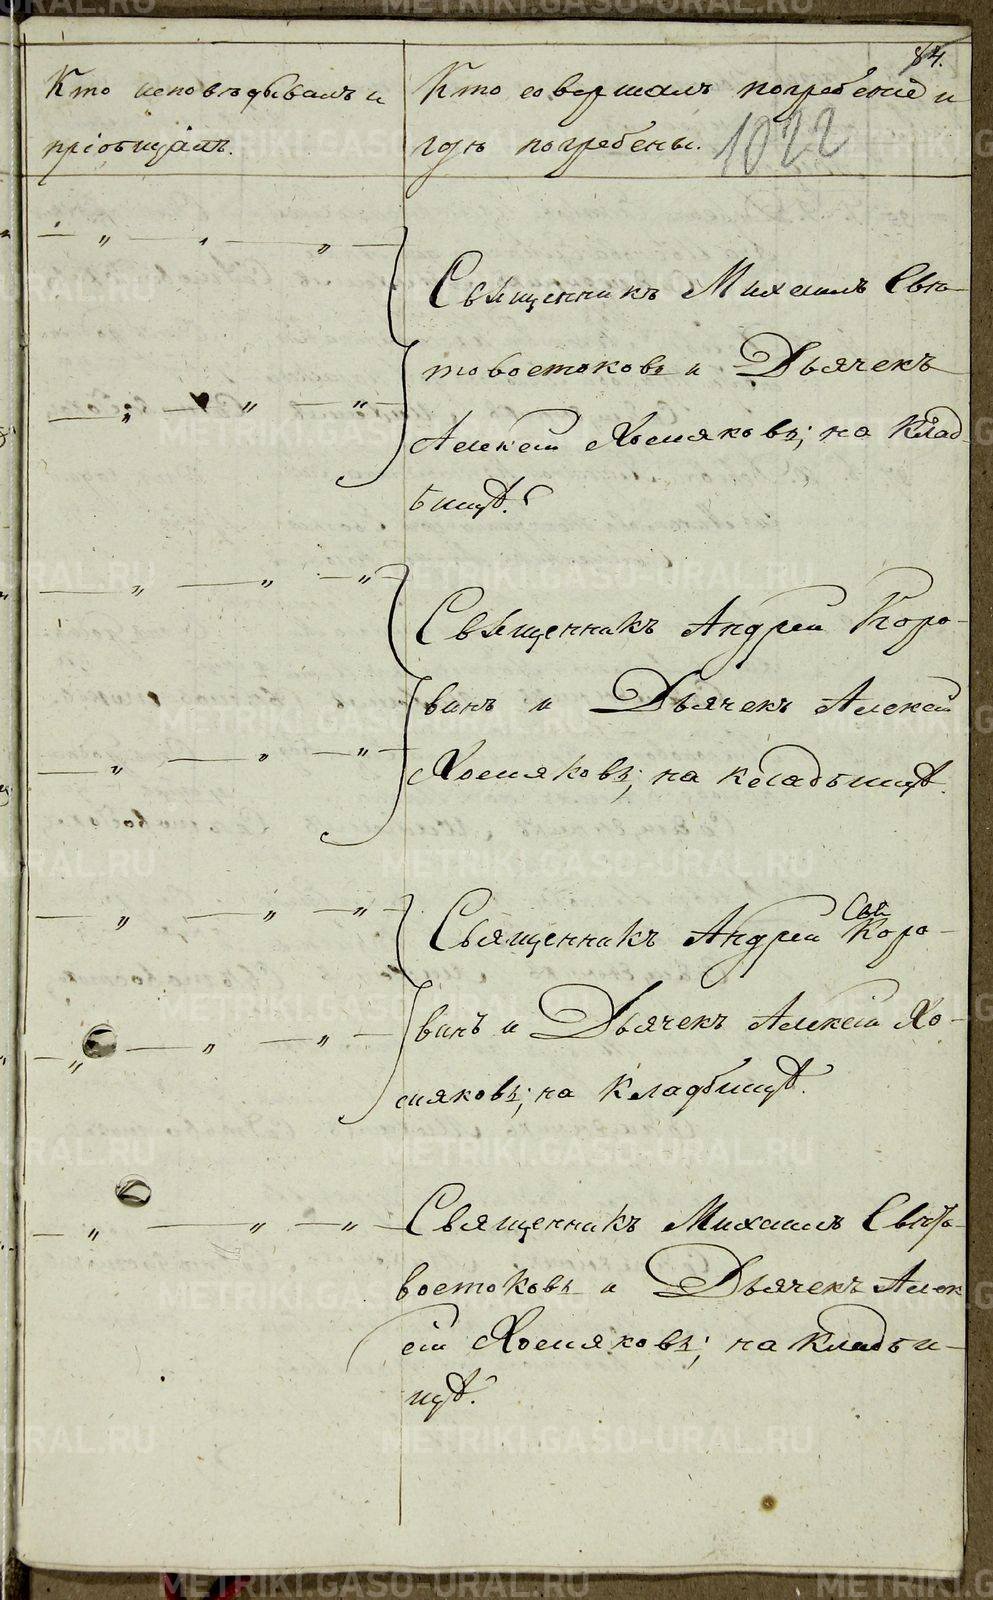 84.
Кто исповѣдывалъ и
пріобщалъ.
Кто совершалъ погребеніе и
гдѣ погребены.
1022
Священникъ Михаилъ Свѣ-
товостоковъ и Дьячекъ
Алексѣй Хомяковъ; на Клад-
бищѣ.
Священникъ Андрей Коро-
винъ и Дьячекъ Алексѣй
Хомяковъ; на кладбищѣ.
Священникъ Андрей Коро-
винъ и Дьячекъ Алексѣй Хо-
мяковъ; на Кладбищѣ.
Священникъ Михаилъ Свѣто-
востоковъ и Дьячекъ Алек
сѣй Хомяковъ; на Кладби-
щѣ.
METRIKI.GASO-URAL.RU